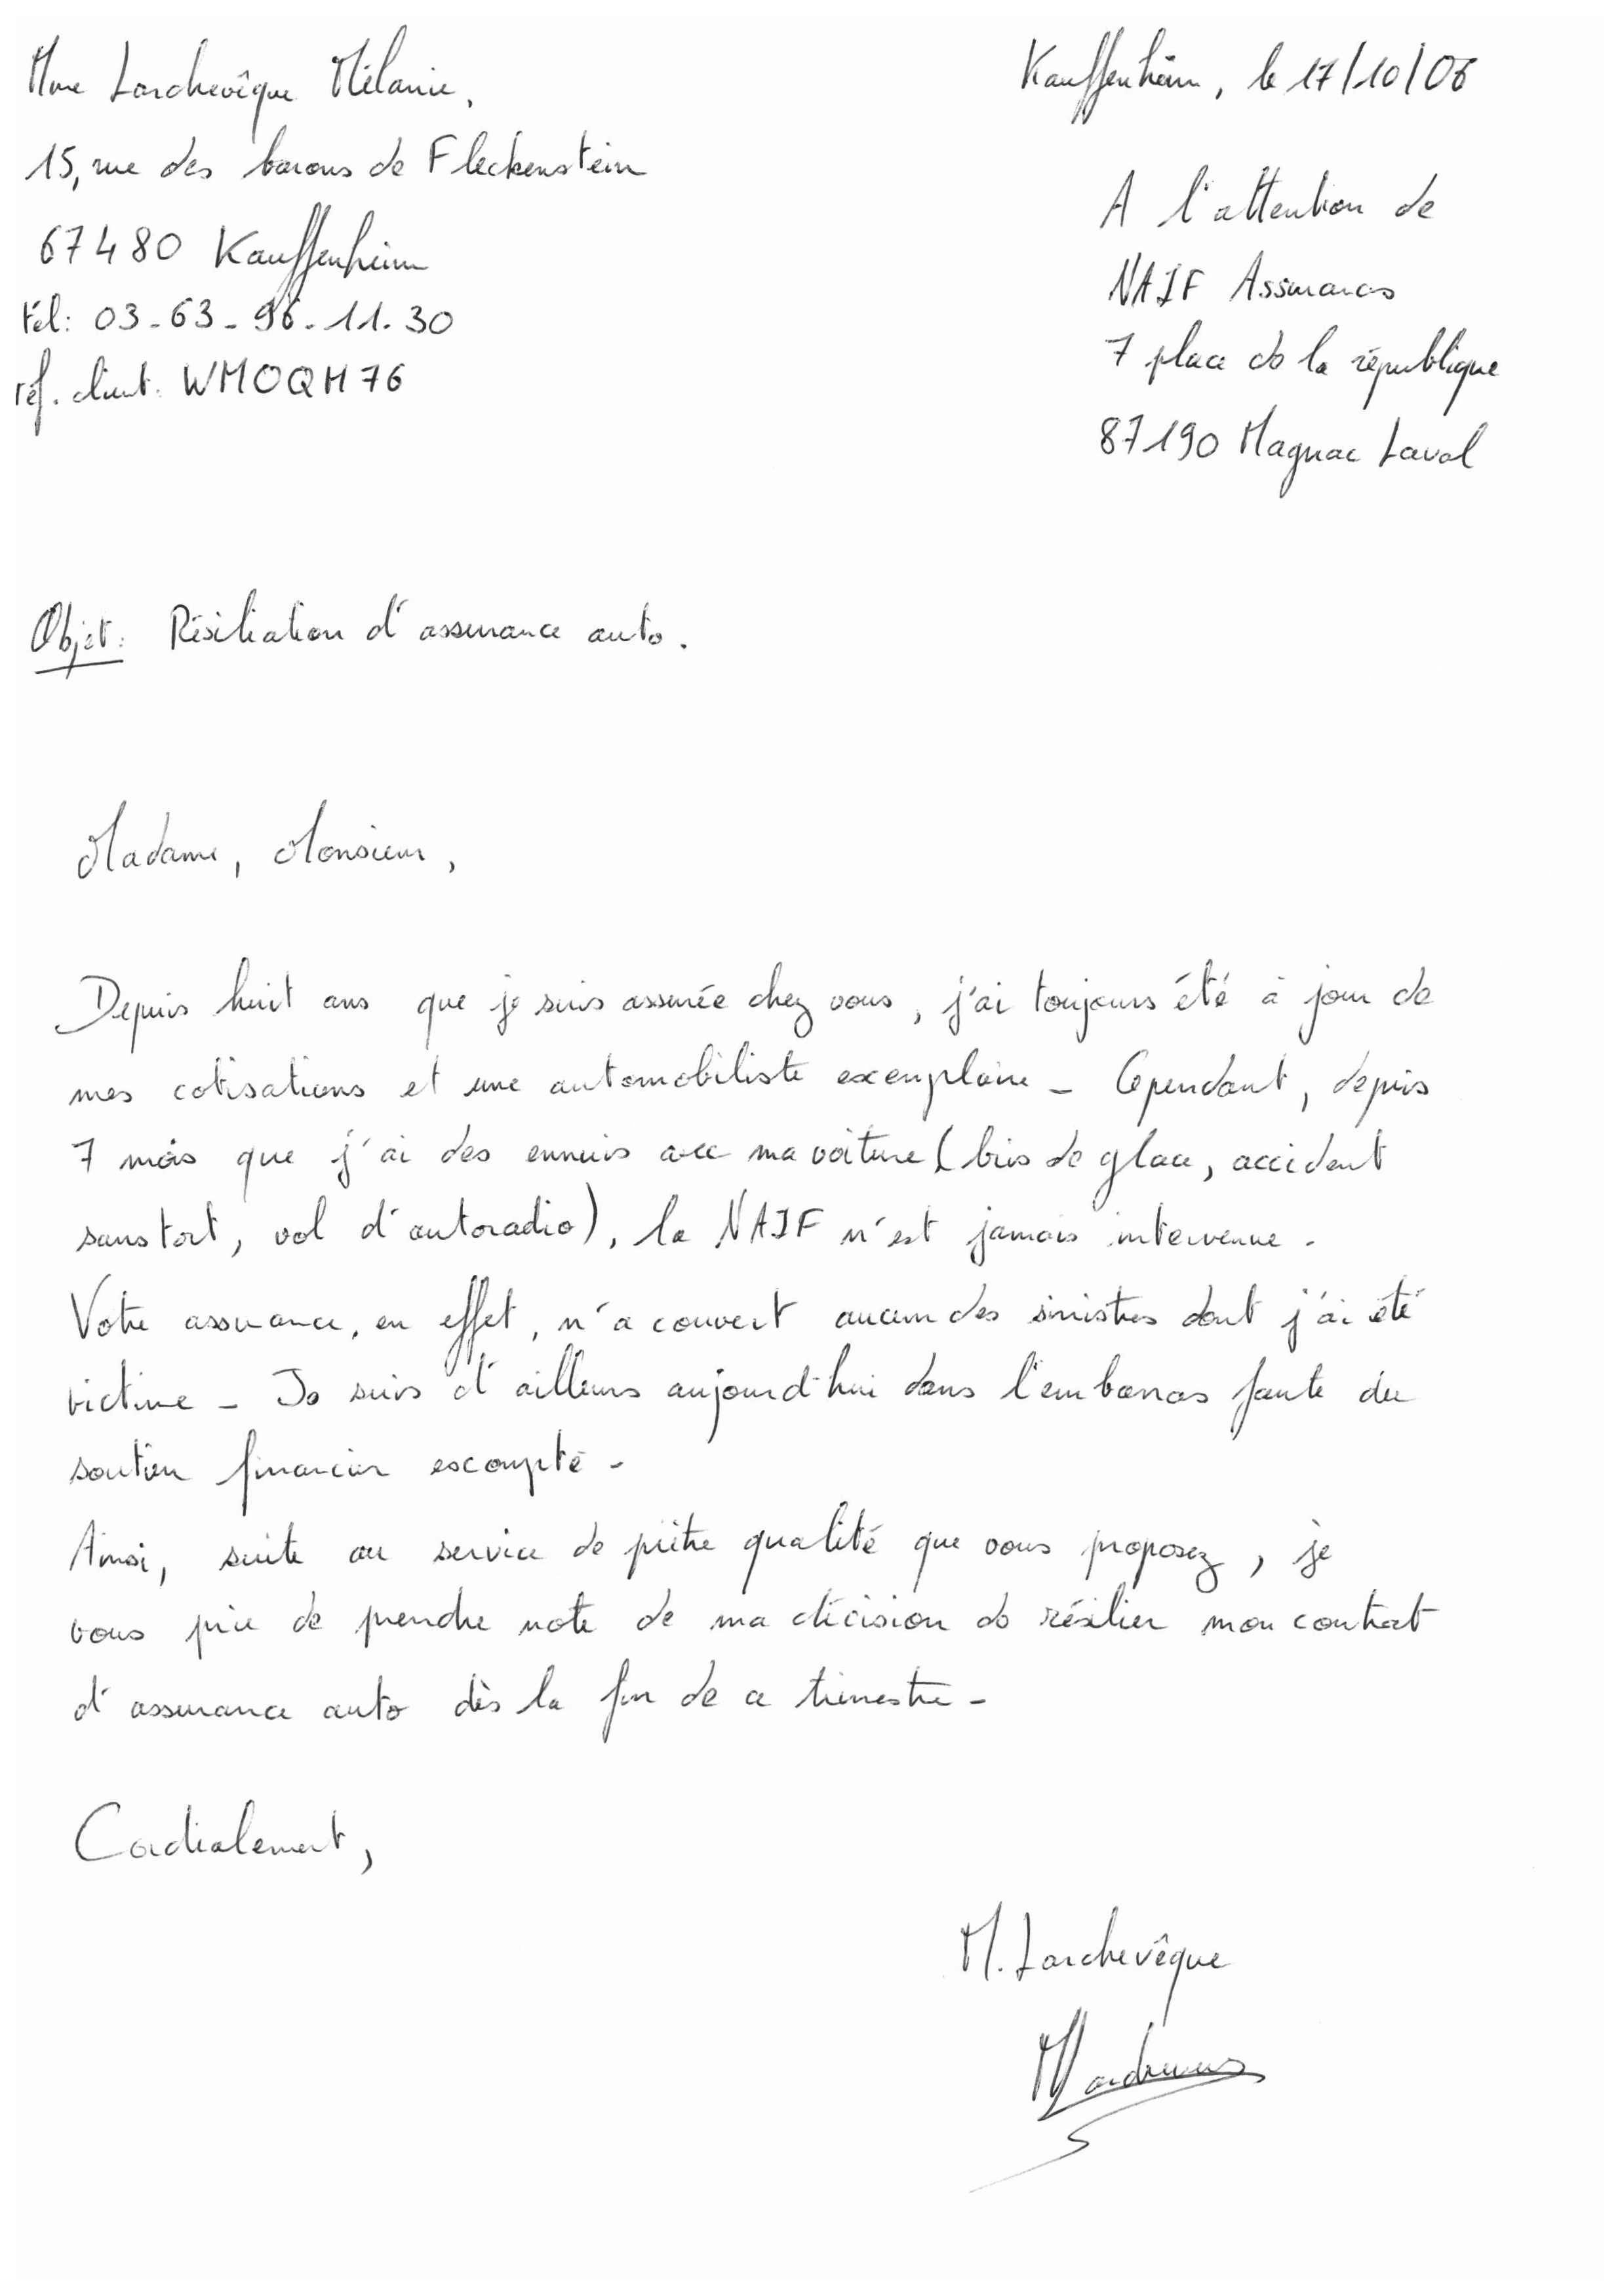 Mme Larchevêque Mélanie,
15, rue des barons de Fleckenstein
67480 Kauffenheim
tél: 03-63-96-11.30
réf. client: WMOQM76
Kauffenheim, le 17/10/06
A l'attention de
NAIF Assurances
7 place de la république
87190 Magnac Laval
Objet: Résiliation d'assurance auto.
Madame, Monsieur,
Depuis huit ans que je suis assurée chez vous, j'ai toujours été à jour de
mes cotisations et une automobiliste exemplaire - Cependant, depuis
7 mois que j'ai des ennuis avec ma voiture (bris de glace, accident
sans tort, vol d'autoradio), la NAIF n'est jamais intervenue.
Votre assurance, en effet, n'a couvert aucun des sinistres dont j'ai été
victime - Je suis d'ailleurs aujourd'hui dans l'embarras faute du
soutien financier escompté -
Ainsi, suite au service de piètre qualité que vous proposez, je
vous prie de prendre note de ma décision de résilier mon contrat
d'assurance auto dès la fin de ce trimestre -
Cordialement,
M. Larchevêque